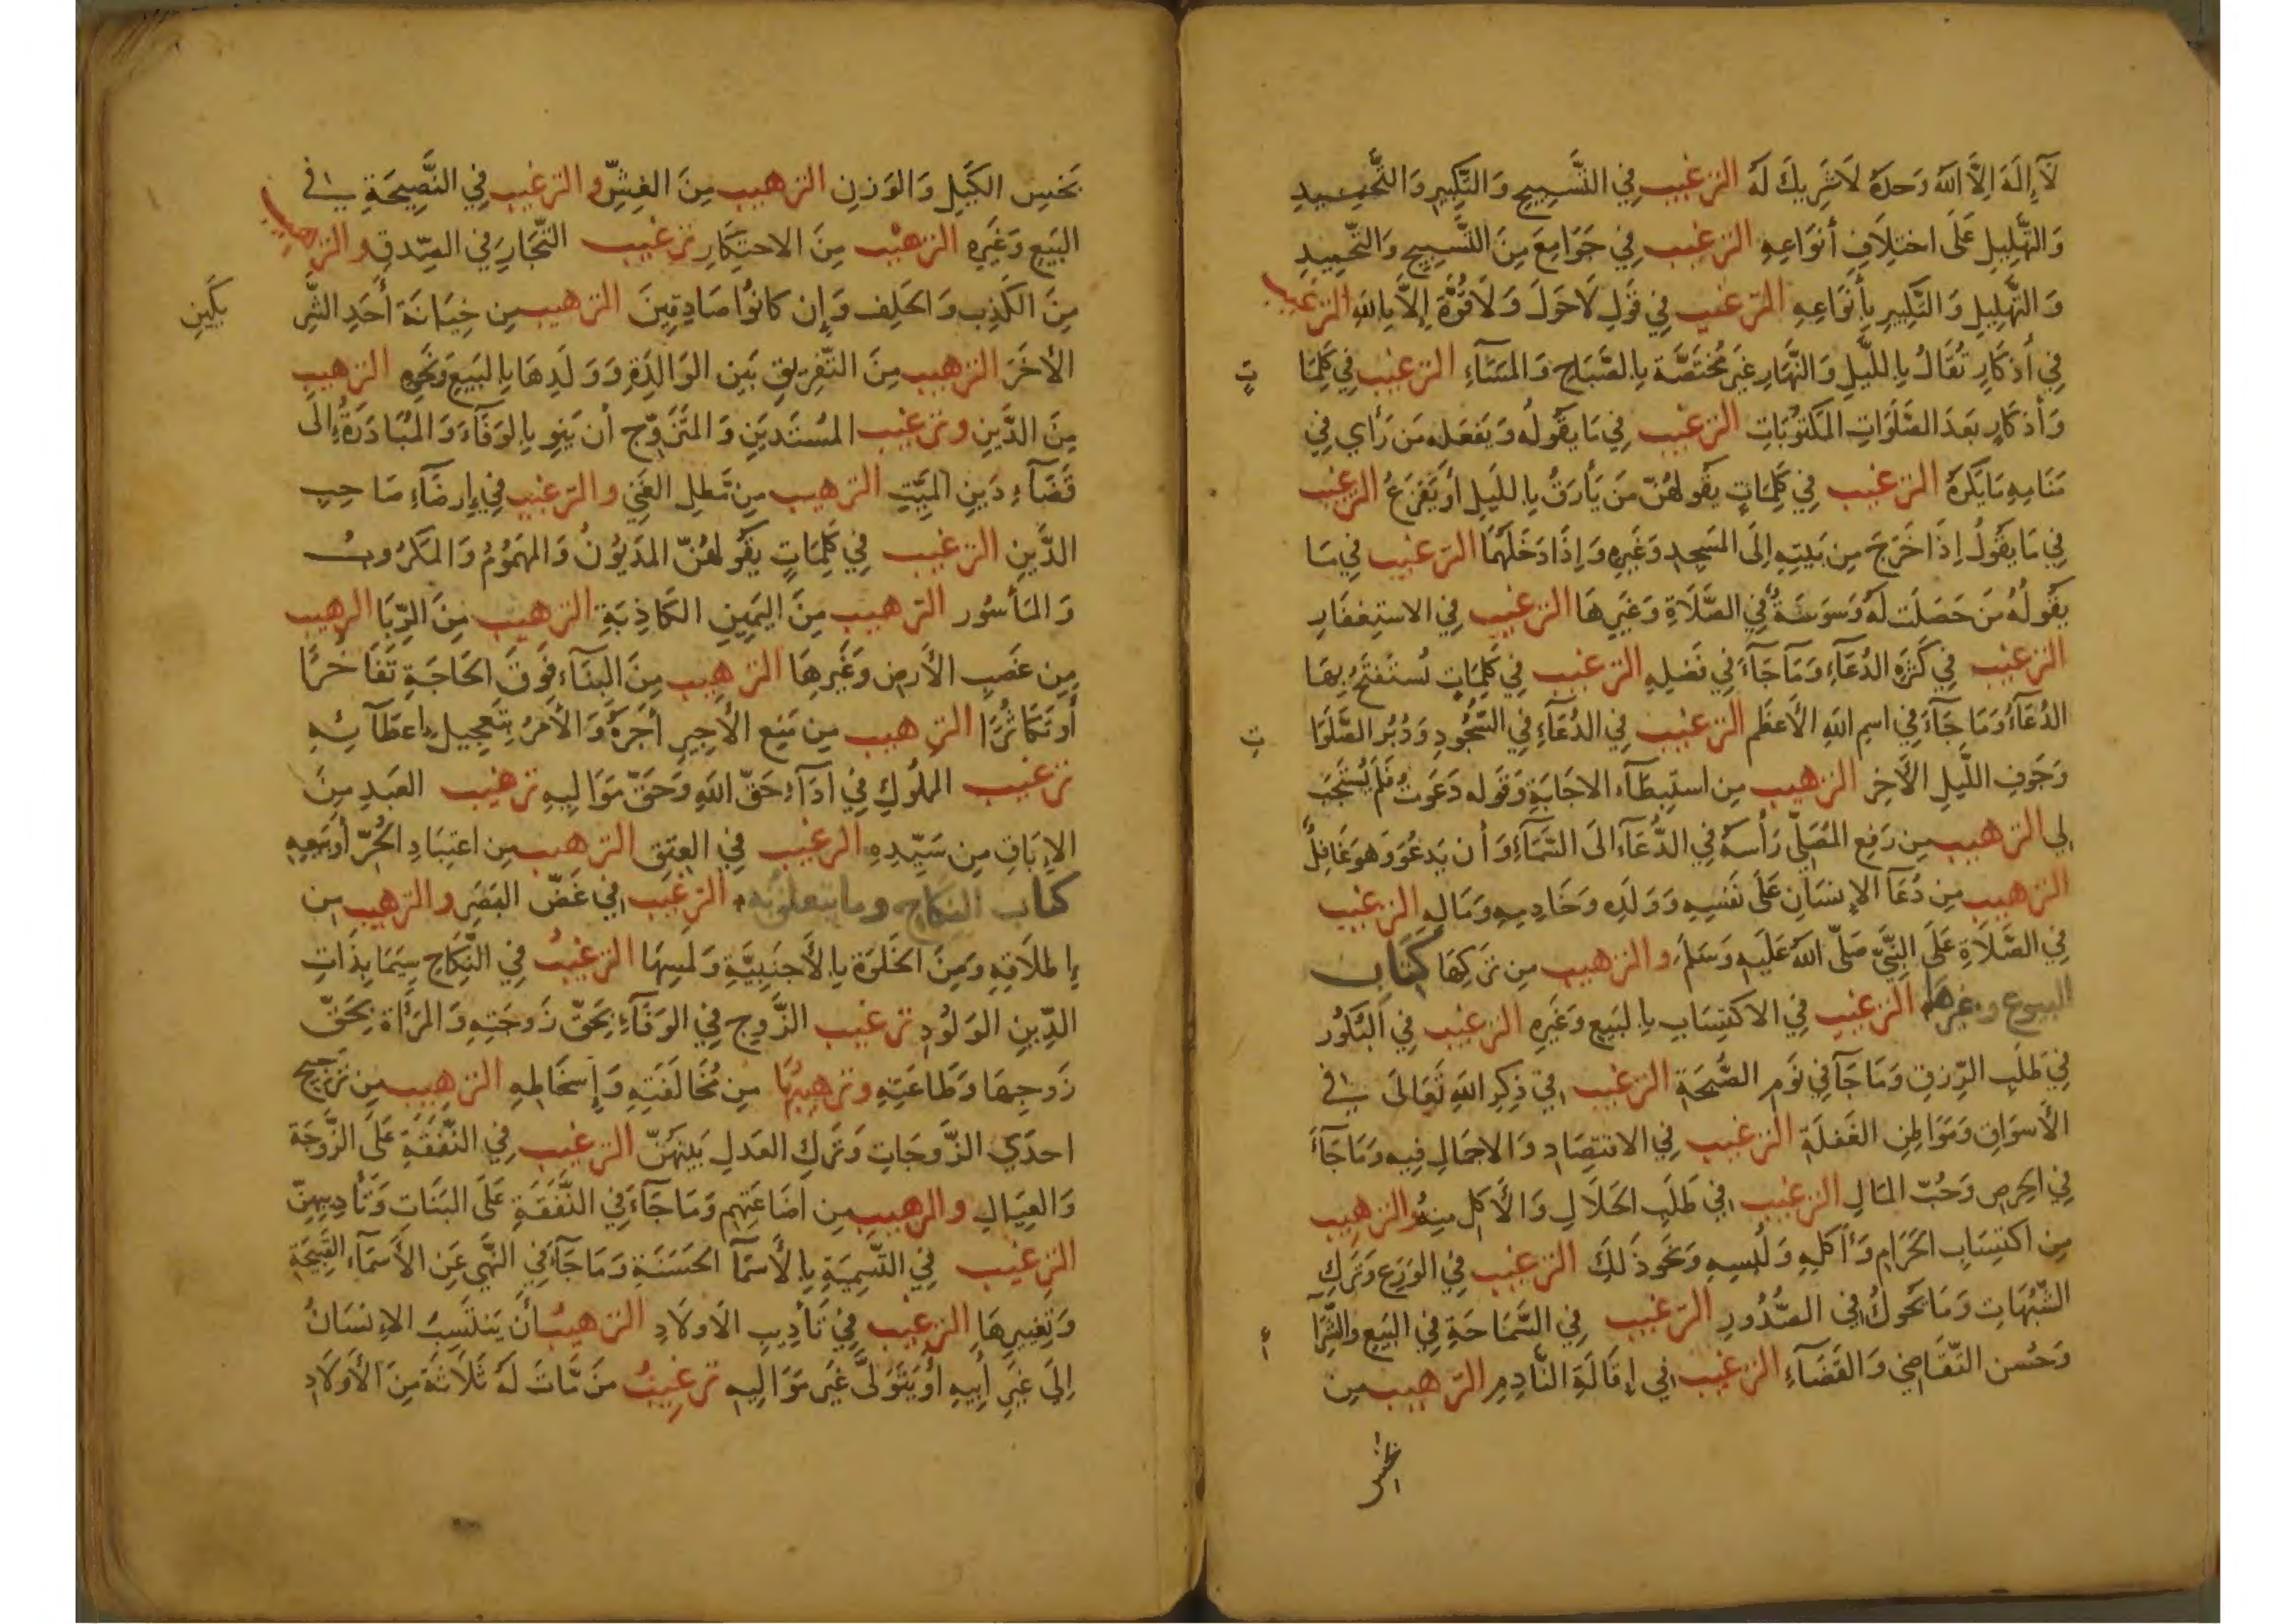 لَآ إِلَهَ اِلَّا اللهُ وَحدَهُ لَا شَرِيكَ لَهُ الترغيب فِي التَّسبِيحِ وَالتَّكبِيرِ وَالتَّحمِيدِ
وَالتَّهلِيلِ عَلَى اختِلَافِ أنوَاعِهِ الترغيب فِي جَوَامِعَ مِنَ التَّسبِيحِ وَالتَّحمِيدِ
وَالتَّهلِيلِ وَالتَّكبِيرِ بِأَنوَاعِهِ الترغيب فِي قَولِ لَا حَولَ وَلَا قُوَّةَ إِلَّا بِاللهِ الترغيب
فِي أَذكَارٍ تُقَالُ بِاللَّيلِ وَالنَّهَارِ غَيرَ مُختَصَّة بِالصَّبَاحِ وَالمَسَآءِ الترغيب فِي كَلِمَا تٍ
وَأَذكَارٍ بَعدَ الصَّلَوَاتِ المَكتُوبَاتِ الترغيب فِي مَا يَقُولُه وَيَفعَله مَن رَأي فِي
مَنَامِهِ مَا يَكرَهُ الترغيب فِي كَلِمَاتٍ يَقُولهُنّ مَن يَأرَقُ بِاللَيلِ أَو يَفزَعُ الترغيب
فِي مَا يَقُولُ اِذَا خَرَجَ مِن بَيتِهِ اِلَى المَسجِدِ وَغَيرِهِ وَإِذَا دَخَلَهُمَا الترغيب فِي مَا
يَقُولُهُ مَن حَصَلَت لَهُ وَسوَسَةٌ فِي الصَّلَاةِ وَغَيرِهَا الترغيب فِي الاستِغفَارِ
الترغيب فِي كَثرَةِ الدُعَآءِ وَمَا جَآءَ فِي فَضلِهِ الترغيب فِي كَلِمَاتٍ تُستَفتَحُ بِهَا
الدُعَآءُ وَمَا جَآءَ فِي اسمِ اللهِ الأَعظَم الترغيب فِي الدُعَآءِ فِي السُّجُودِ وَدُبُرِ الصَّلَوَا تِ
وَجَوفِ اللَّيلِ الأَخِرِ الترهيب مِن استِبطَآء الاجَابَةِ وَقَولِه دَعَوتُ فَلَم يُستَجَب
لِي الترهيب مِن رَفعِ المُصَلّي رَأسَهُ فِي الدُّعَآء الَى السَّمَآءِ وَأن يَدعُوَ وَهوَ غَافِلٌ
الترهيب مِن دُعَآ الإِنسَانِ عَلَى نَفسِهِ وَوَلَدِهِ وَخَادِمِهِ وَمَالِهِ الترغيب
فِي الصَّلَاةِ عَلَى النَّبِيّ صَلّى اللهُ عَلَيهِ وَسَلَّمَ والترهيب مِن تَركِهَا كِتَاب
البيوع وغيرها الترغيب فِي الاكتِسَابِ بِالبَيعِ وَغَيرِهِ الترغيب فِي البُكُورِ
فِي طَلَبِ الرِّزقِ وَمَا جَآ فِي نَومِ الصُّبحَةِ الترغيب فِي ذِكرِ اللهِ تَعَالَى فِي
الأَسوَاقِ وَمَوَاطِنِ الغَفلَةِ الترغيب فِي الاقتِصَادِ وَالاجمَالِ فِيهِ وَمَا جَآءَ
فِي الحِرصِ وَحُبّ المَالِ الترغيب فِي طَلَبِ الحَلَالِ وَالأَكلِ مِنهُ والترهيب
مِن اكتِسَابِ الحَرَامِ وَأَكلِهِ وَلُبسِهِ وَنَحوِ ذَلِكَ الترغيب فِي الوَرَعِ وَتَركِ
الشُّبُهَاتِ وَمَا يَحُوكُ فِي الصُّدُورِ الترغيب فِي السَّمَاحَةِ فِي البَيعِ وَالشِّرَآ ءِ
وَحُسنِ التَّقَاضِي وَالقَضَآءِ الترغيب فِي إِقَالَةِ النَّادِمِ الترهيب مِن
بخس
بَخسِ الكَيلِ وَالوَزنِ الترهيب مِنَ الغِشّ والترغيب فِي النَّصِيحَةِ فِي
البَيعِ وَغَيرِهِ الترهيب مِنَ الاحتِكَارِ ترغيب التُّجَارِ فِي الصِّدقِ والترهيب
مِنَ الكَذِبِ وَالحَلِف وَإِن كَانُوا صَادِقِينَ الترهيب مِن خِيَانَة أَحَدِ الشَّرِ يكَينِ
الأخَرَ الترهيب مِنَ التَّفرِيقِ بَين الوَالِدَةِ وَوَلَدِهَا بِالبَيعِ وَنَحوِهِ الترهيب
مِنَ الدَّينِ وترغيب المُستَدينِ وَالمتَزَوّج أن يَنوِ بِالوَفَآء وَالمُبَادَرَةُ اِلَى
قَضَآءِ دَينِ المَيّتِ الترهيب مِن مَطلِ الغَنِي والترغيب فِي إِرضَآءِ صَاحِبِ
الدَّينِ الترغيب فِي كَلِمَاتٍ يَقُولهُنّ المَديُونُ وَالمَهمُومُ وَالمَكرُوبُ
وَالمَأسُور الترهيب مِنَ اليَمِينِ الكَاذِبَةِ الترهيب مِنَ الرِّبَا الرهيب
مِن غَصبِ الأَرضِ وَغَيرِهَا الترهيب مِنَ البِنَآء فَوقَ الحَاجَةِ تَفَاخُرًا
أَو تَكَاثُرًا الترهيب مِن مَنعِ الأَجِيرِ أَجرَهُ وَالأَمرُ بِتَعجِيلِ اعطَآئِهِ
ترغيب المَملُوكِ فِي أدَآءِ حَقّ اللهِ وَحَقّ مَوَالِيهِ ترهيب العَبدِ مِنَ
الإِبَاقِ مِن سَيّدِهِ الرغيب فِي العِتقِ الترهيب مِن اعتِبَادِ الحُرّ أَو بَيعِهِ
كتاب النكاح وما يتعلق به الترغيب فِي غَضّ البَصَرِ والترهيب مِن
إِطلَاقِهِ وَمِنَ الخَلوَة بِالأَجنَبِيَّةِ وَلَمسِهَا الترغيبُ فِي النِّكَاحِ سِيَمَا بِذَاتِ
الدِّينِ الوَلُودِ ترغيب الزَّوجِ فِي الوَفَآءِ بِحَقّ زَوجَتِهِ وَالمَرأَة بِحَقّ
زَوجِهَا وَطَاعَتِهِ وترهيبُهَا مِن مُخَالَفَتِهِ وَإِسخَاطِهِ الترهيب مِن تَرجِيحِ
احدَي الزَّوجَاتِ وَتَركِ العَدلِ بَينَهُنّ الترغيب فِي النَّفَقَةِ عَلَى الزَّوجَة
وَالعِيَالِ والرهيب مِن اضَاعَتِهِم وَمَا جَآءَ فِي النَّفَقَةِ عَلَى البَنَات وَتَأدِيبِهِنّ
الترغيب فِي التَّسمِيَةِ بِالأَسمَآ الحَسَنَةِ وَمَا جَآءَ فِي النَّهي عَنِ الأَسمَآء القَبِيحَةِ
وَتَغيِيرِهَا الترغيب فِي تَأدِيبِ الأَولَادِ الترهيبُ أَن يَنتَسِبُ الإِنسَانُ
اِلَى غَيرِ أَبِيهِ أَو يَتَوَلّى غَيرَ مَوَالِيهِ ترغيبُ مَن مَّاتَ لَهُ ثَلَاثَة مِنَ الأَولَادِ